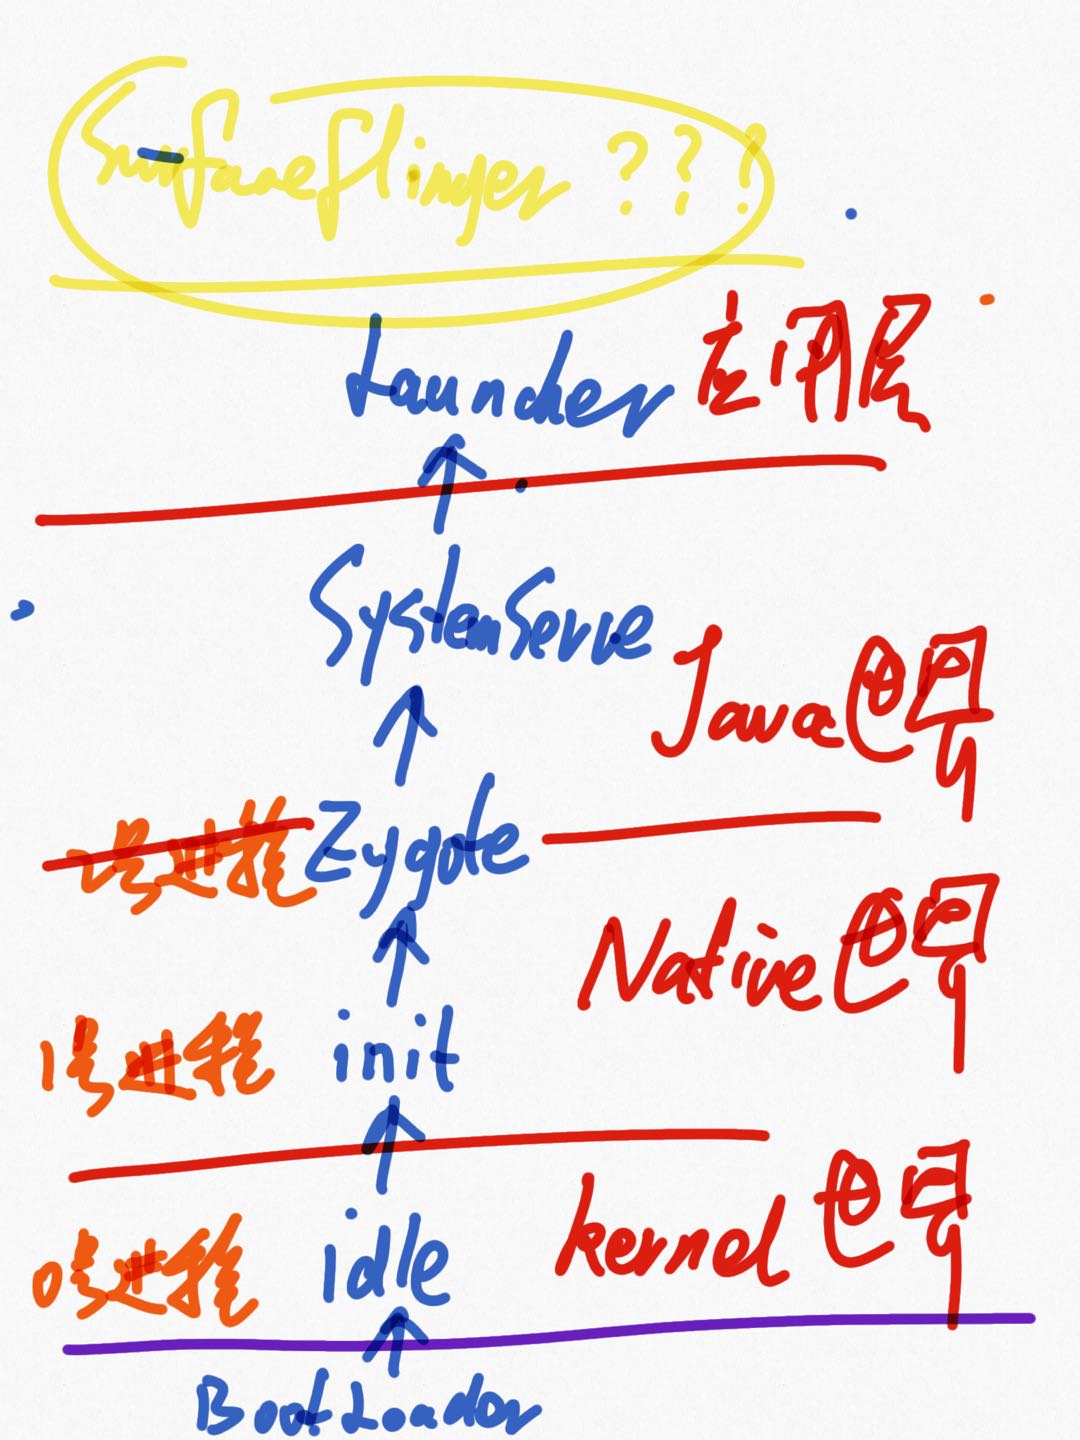 Surfaceflinger ???
Launcher 应用层
SystemServe
Java世界
号进程 Zygote
Native世界
1号进程 init
kernel 世界
0号进程 idle
BootLoader